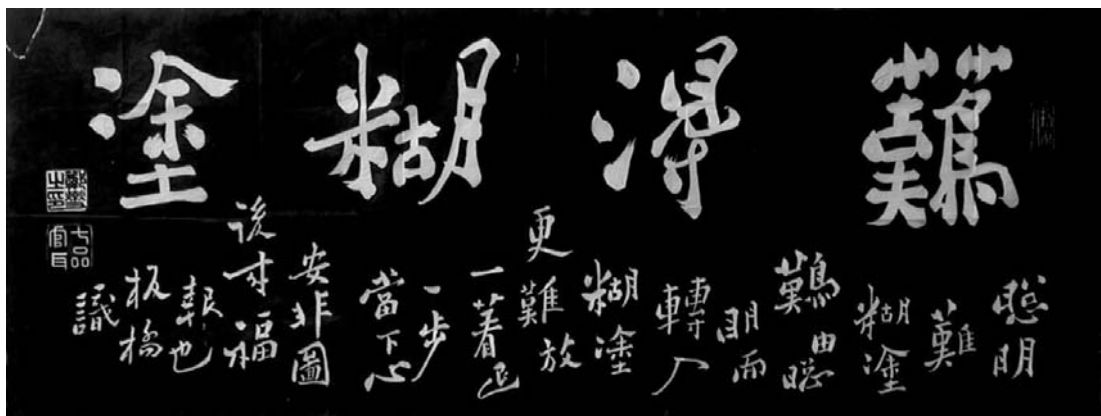 難得糊塗
聰明
難
糊塗
難由聰
明而
轉入
糊塗
更難放
一着退
一步
當下心
安非圖
後来福
報也
板橋
識
鄭燮之印
七品官耳